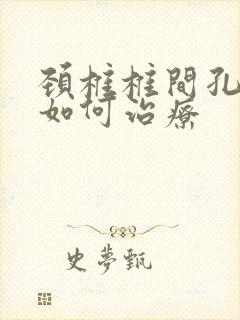 頚椎椎間孔
如何治療
史夢甄